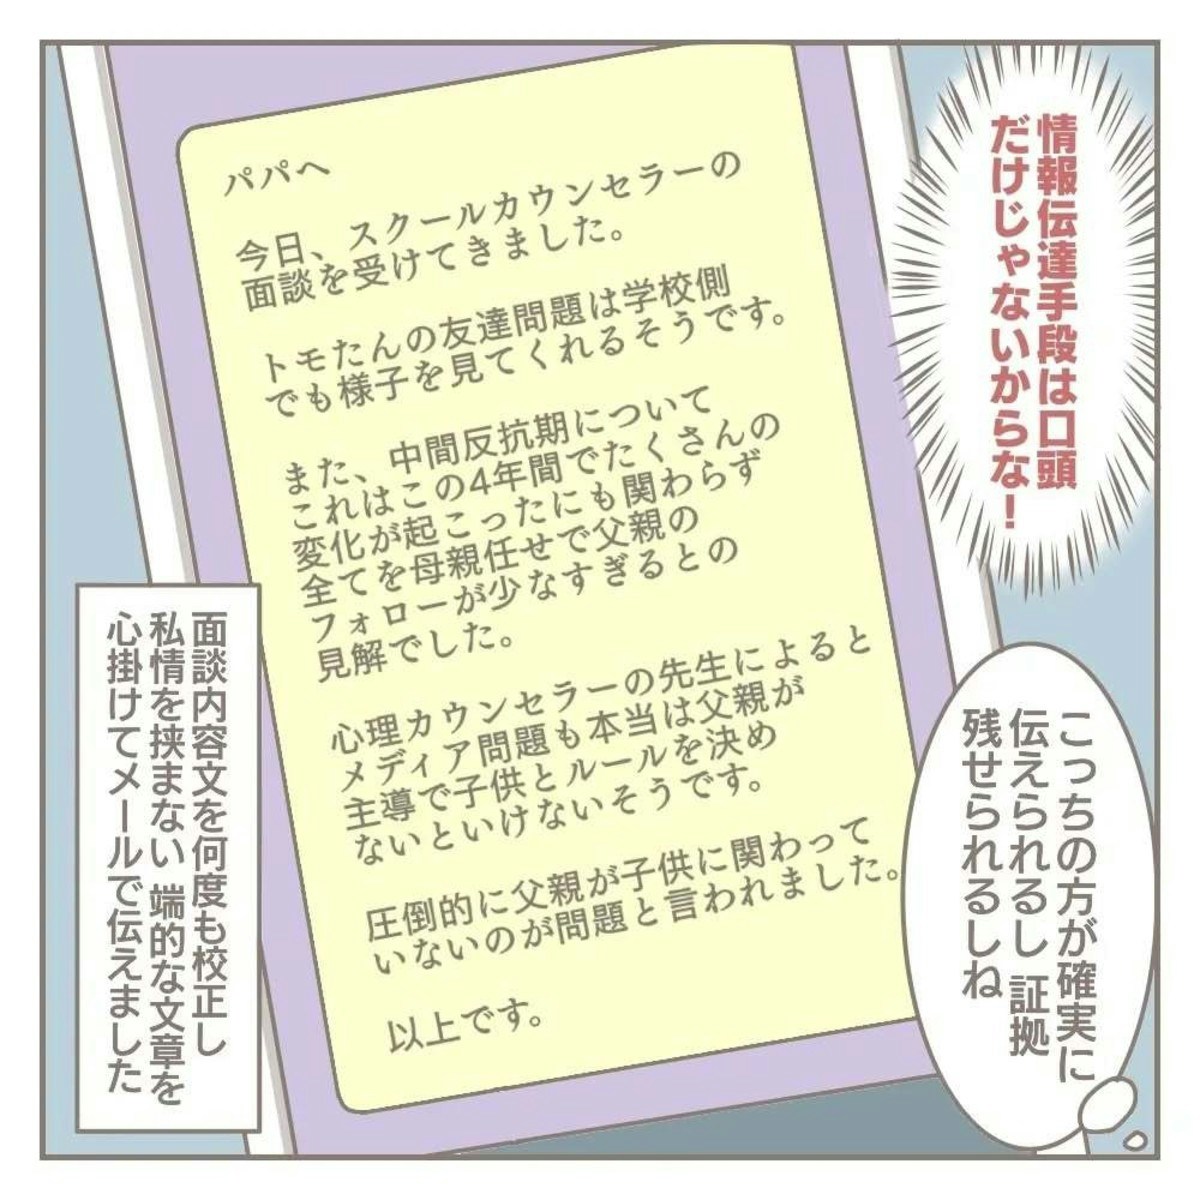 情報伝達手段は口頭
だけじゃないからな!
パパへ
今日、スクールカウンセラーの
面談を受けてきました。
トモたんの友達問題は学校側
でも様子を見てくれるそうです。
また、中間反抗期について
これはこの4年間でたくさんの
変化が起こったにも関わらず
全てを母親任せで父親の
フォローが少なすぎるとの
見解でした。
心理カウンセラーの先生によると
メディア問題も本当は父親が
主導で子供とルールを決め
ないといけないそうです。
圧倒的に父親が子供に関わって
いないのが問題と言われました。
以上です。
こっちの方が確実に
伝えられるし 証拠
残せられるしね
面談内容文を何度も校正し
私情を挟まない 端的な文章を
心掛けてメールで伝えました